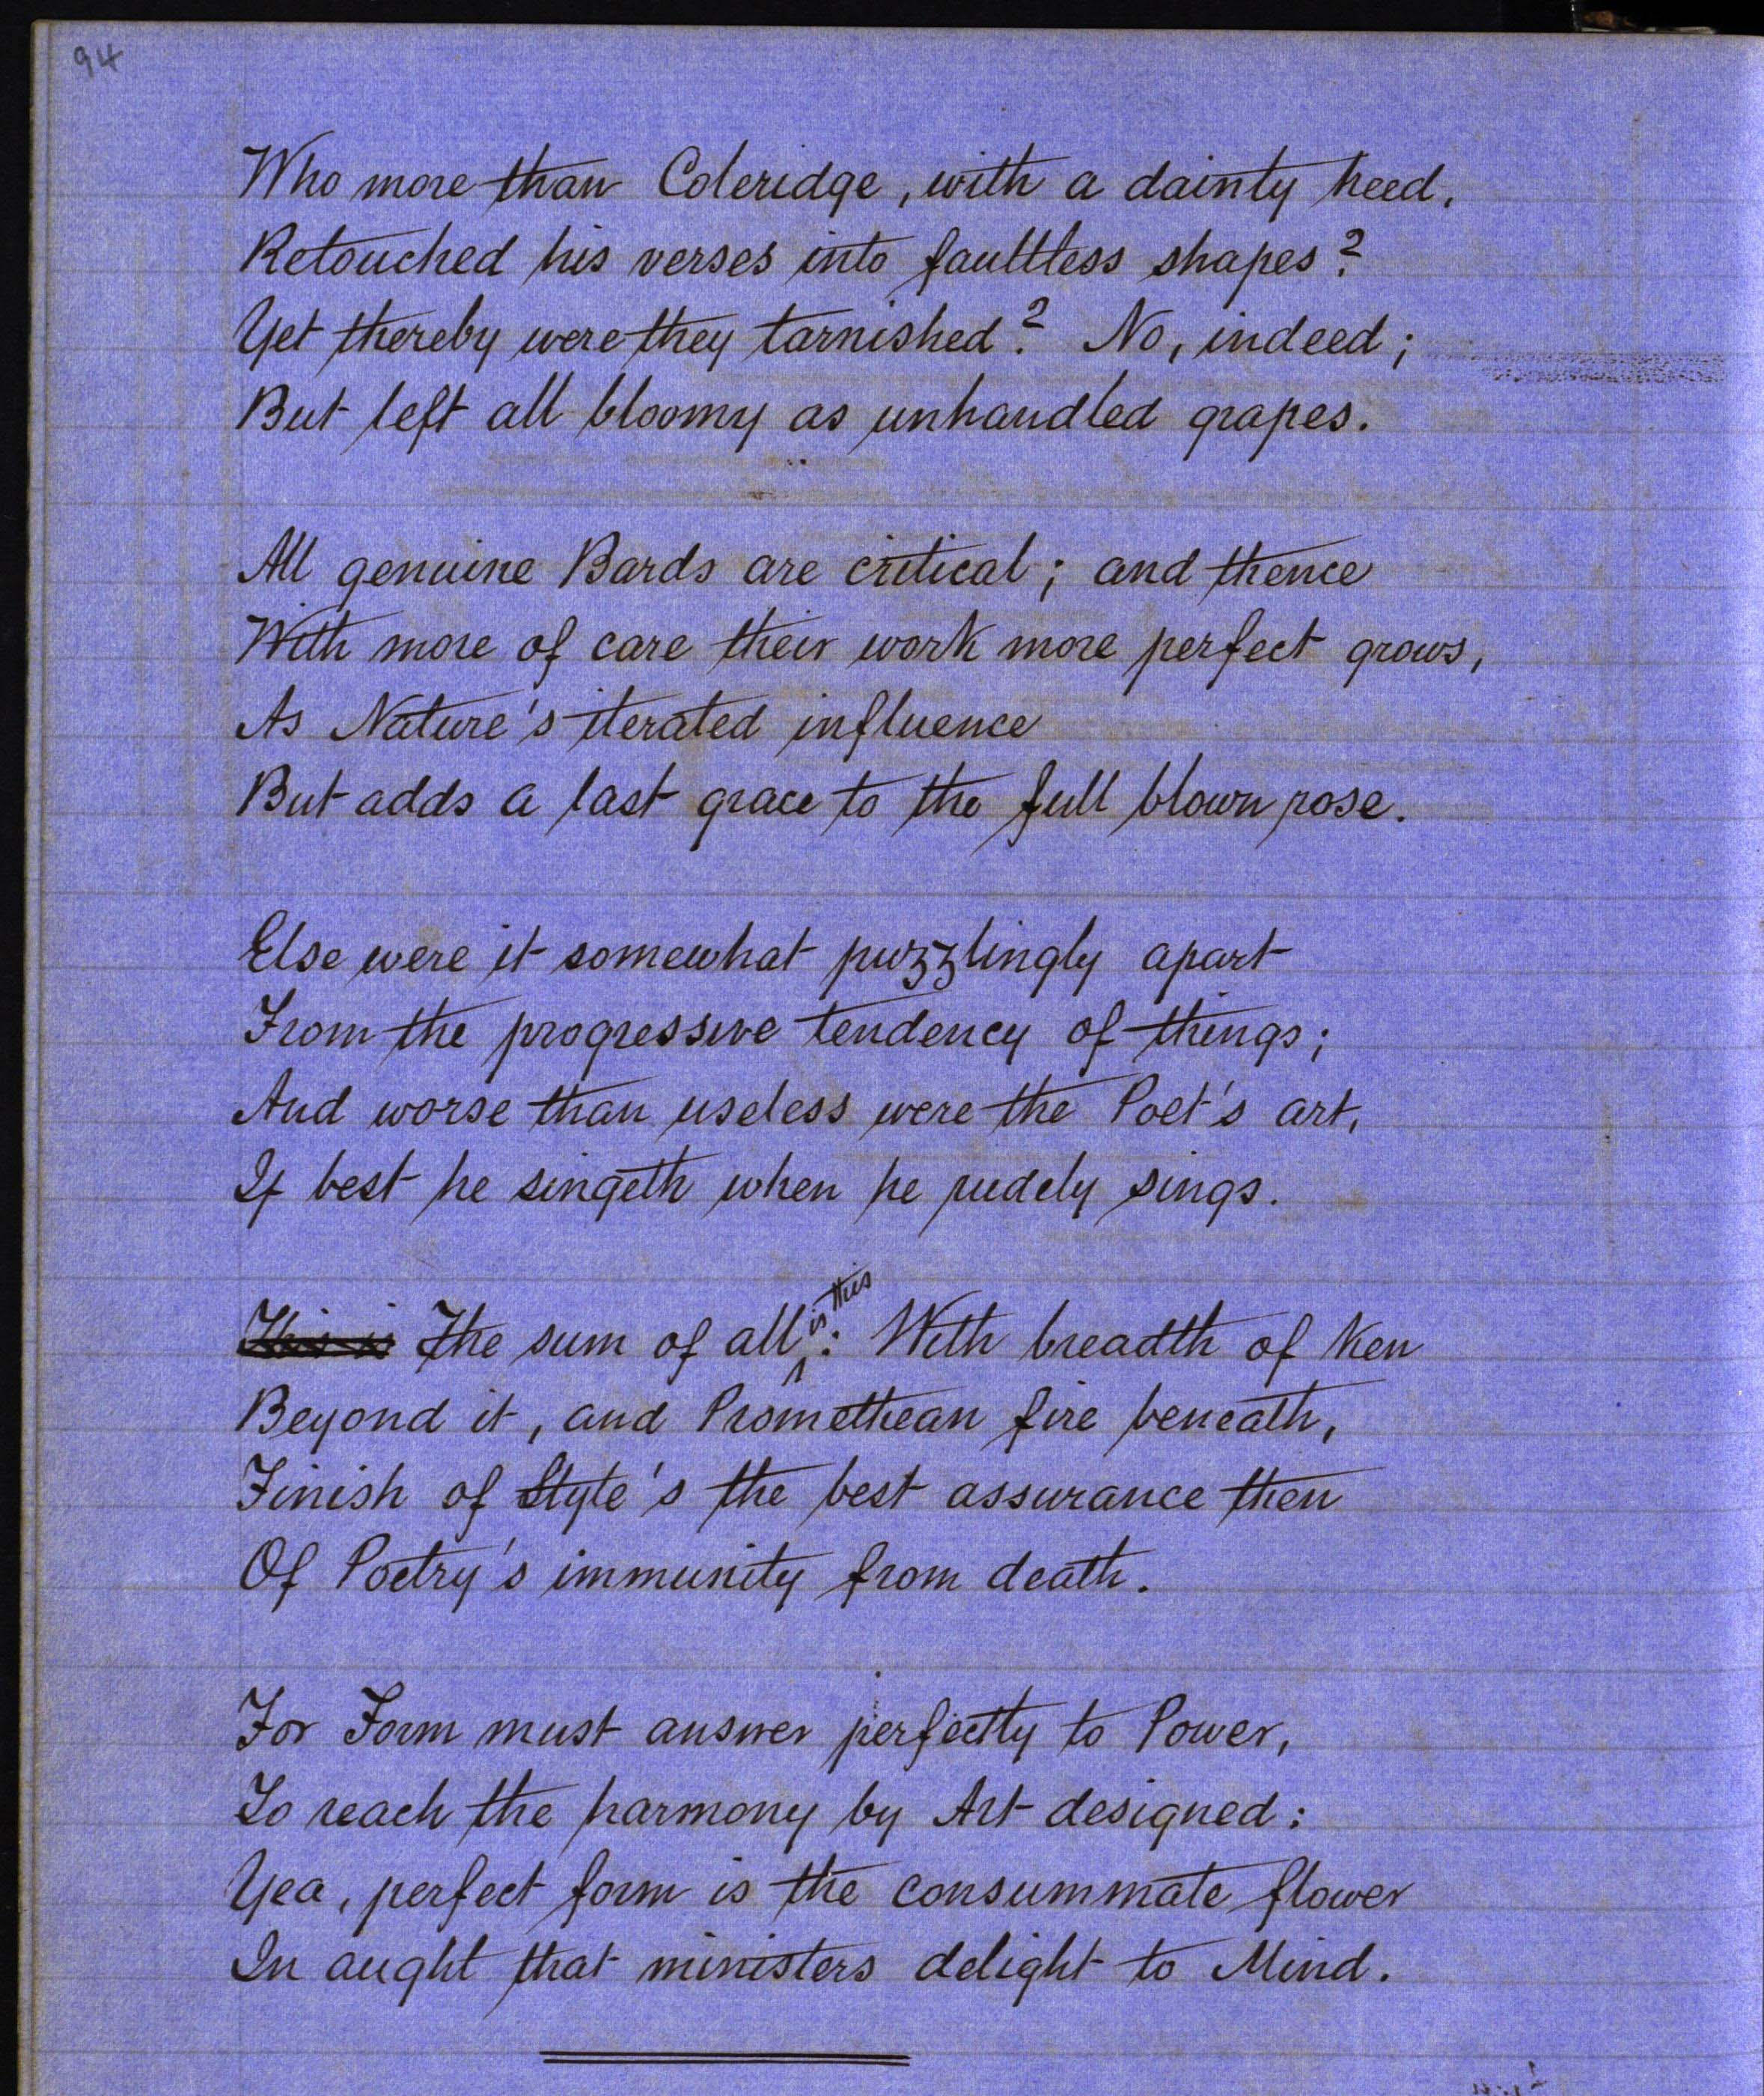 94
Who more than Coleridge, with a dainty heed,
Retouched his verses into faultless shapes?
Yet thereby were they tarnished? No, indeed;
But left all bloomy as unhandled grapes.
All genuine Bards are critical; and thence
With more of care their work more perfect grows,
As Nature's iterated influence
But adds a last grace to the full blown rose.
Else were it somewhat puzzlingly apart
From the progressive tendency of things;
And worse than useless were the Poet's art,
If best he singeth when he rudely sings.
This is The sum of all is this: With breadth of Ken
Beyond it, and Promethean fire beneath,
Finish of Style's the best assurance then
Of Poetry's immunity from death.
For Form must answer perfectly to Power,
To reach the harmony by Art designed:
Yea, perfect form is the consummate flower
In aught that ministers delight to Mind.